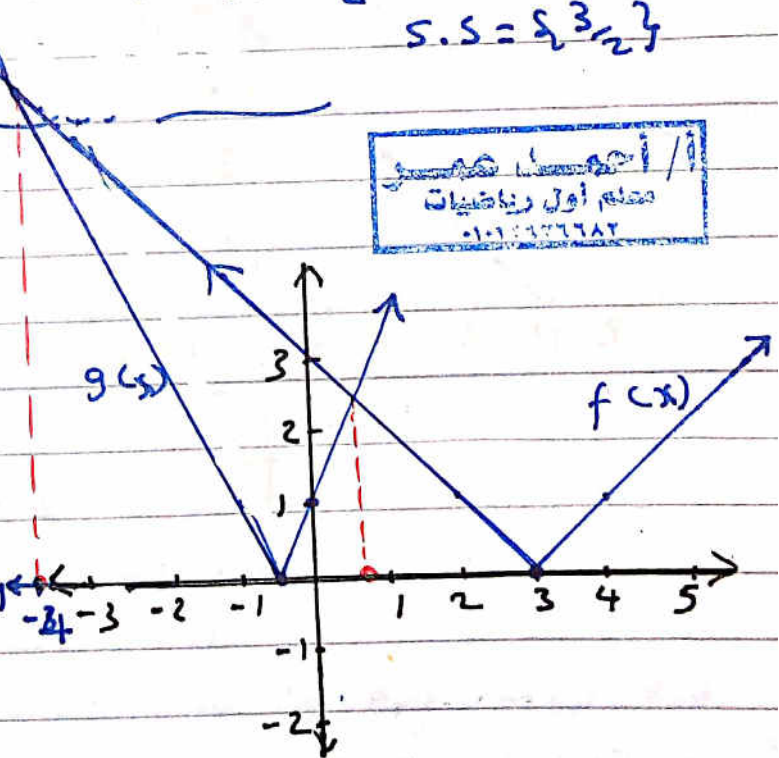 S.S = {3/2}
أ / أحمد عمر
معلم أول رياضيات
g(x)
f(x)
3
2
1
-4 -3 -2 -1 1 2 3 4 5
-1
-2